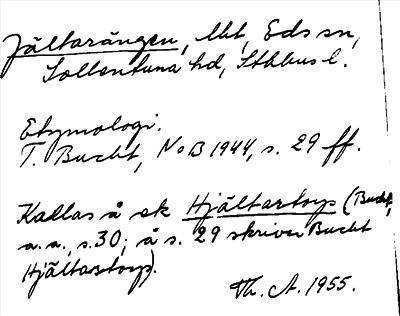 Jältarängen, lht, Eds sn,
Sollentuna hd, Sthlms l.
Etymologi.
T. Bucht, NoB 1944, s. 29 ff.
Kallas å ek Hjältartorp (Bucht,
a.a., s.30; å s. 29 skriver Bucht
Hjältastorp).
Th. A. 1955.